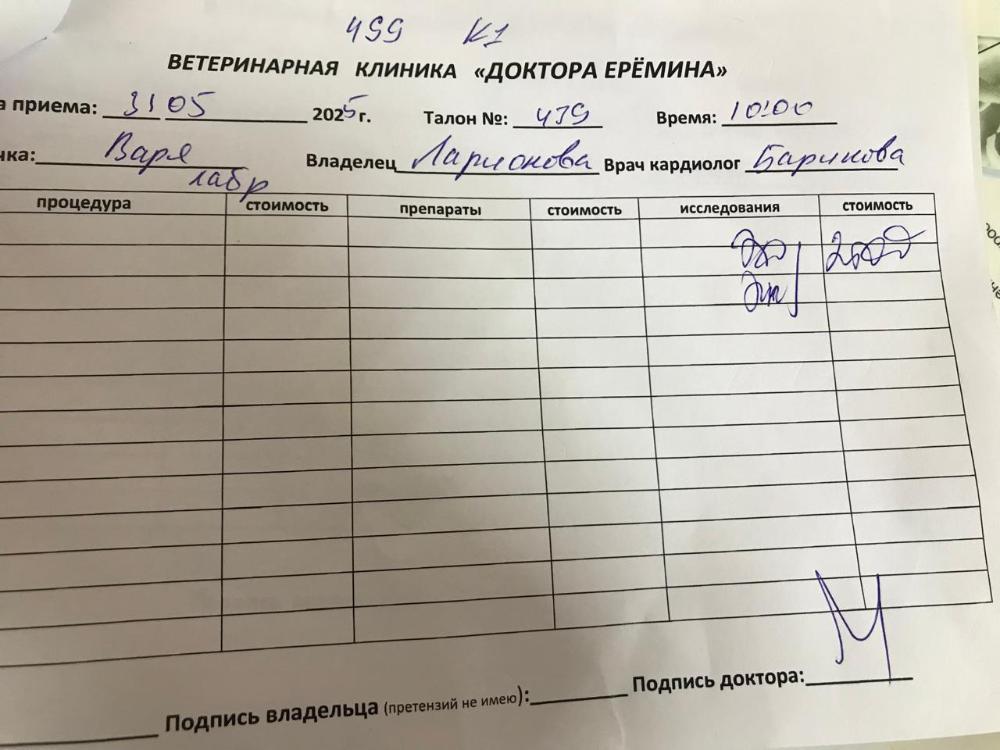 499 К1
ВЕТЕРИНАРНАЯ КЛИНИКА «ДОКТОРА ЕРЁМИНА»
а приема: 31 05 2025г. Талон №: 439 Время: 10:00
чка: Варя Владелец Ларионова Врач кардиолог Баринова
лабр
процедура стоимость препараты стоимость исследования стоимость
Эхо 2000
Подпись владельца (претензий не имею): Подпись доктора: